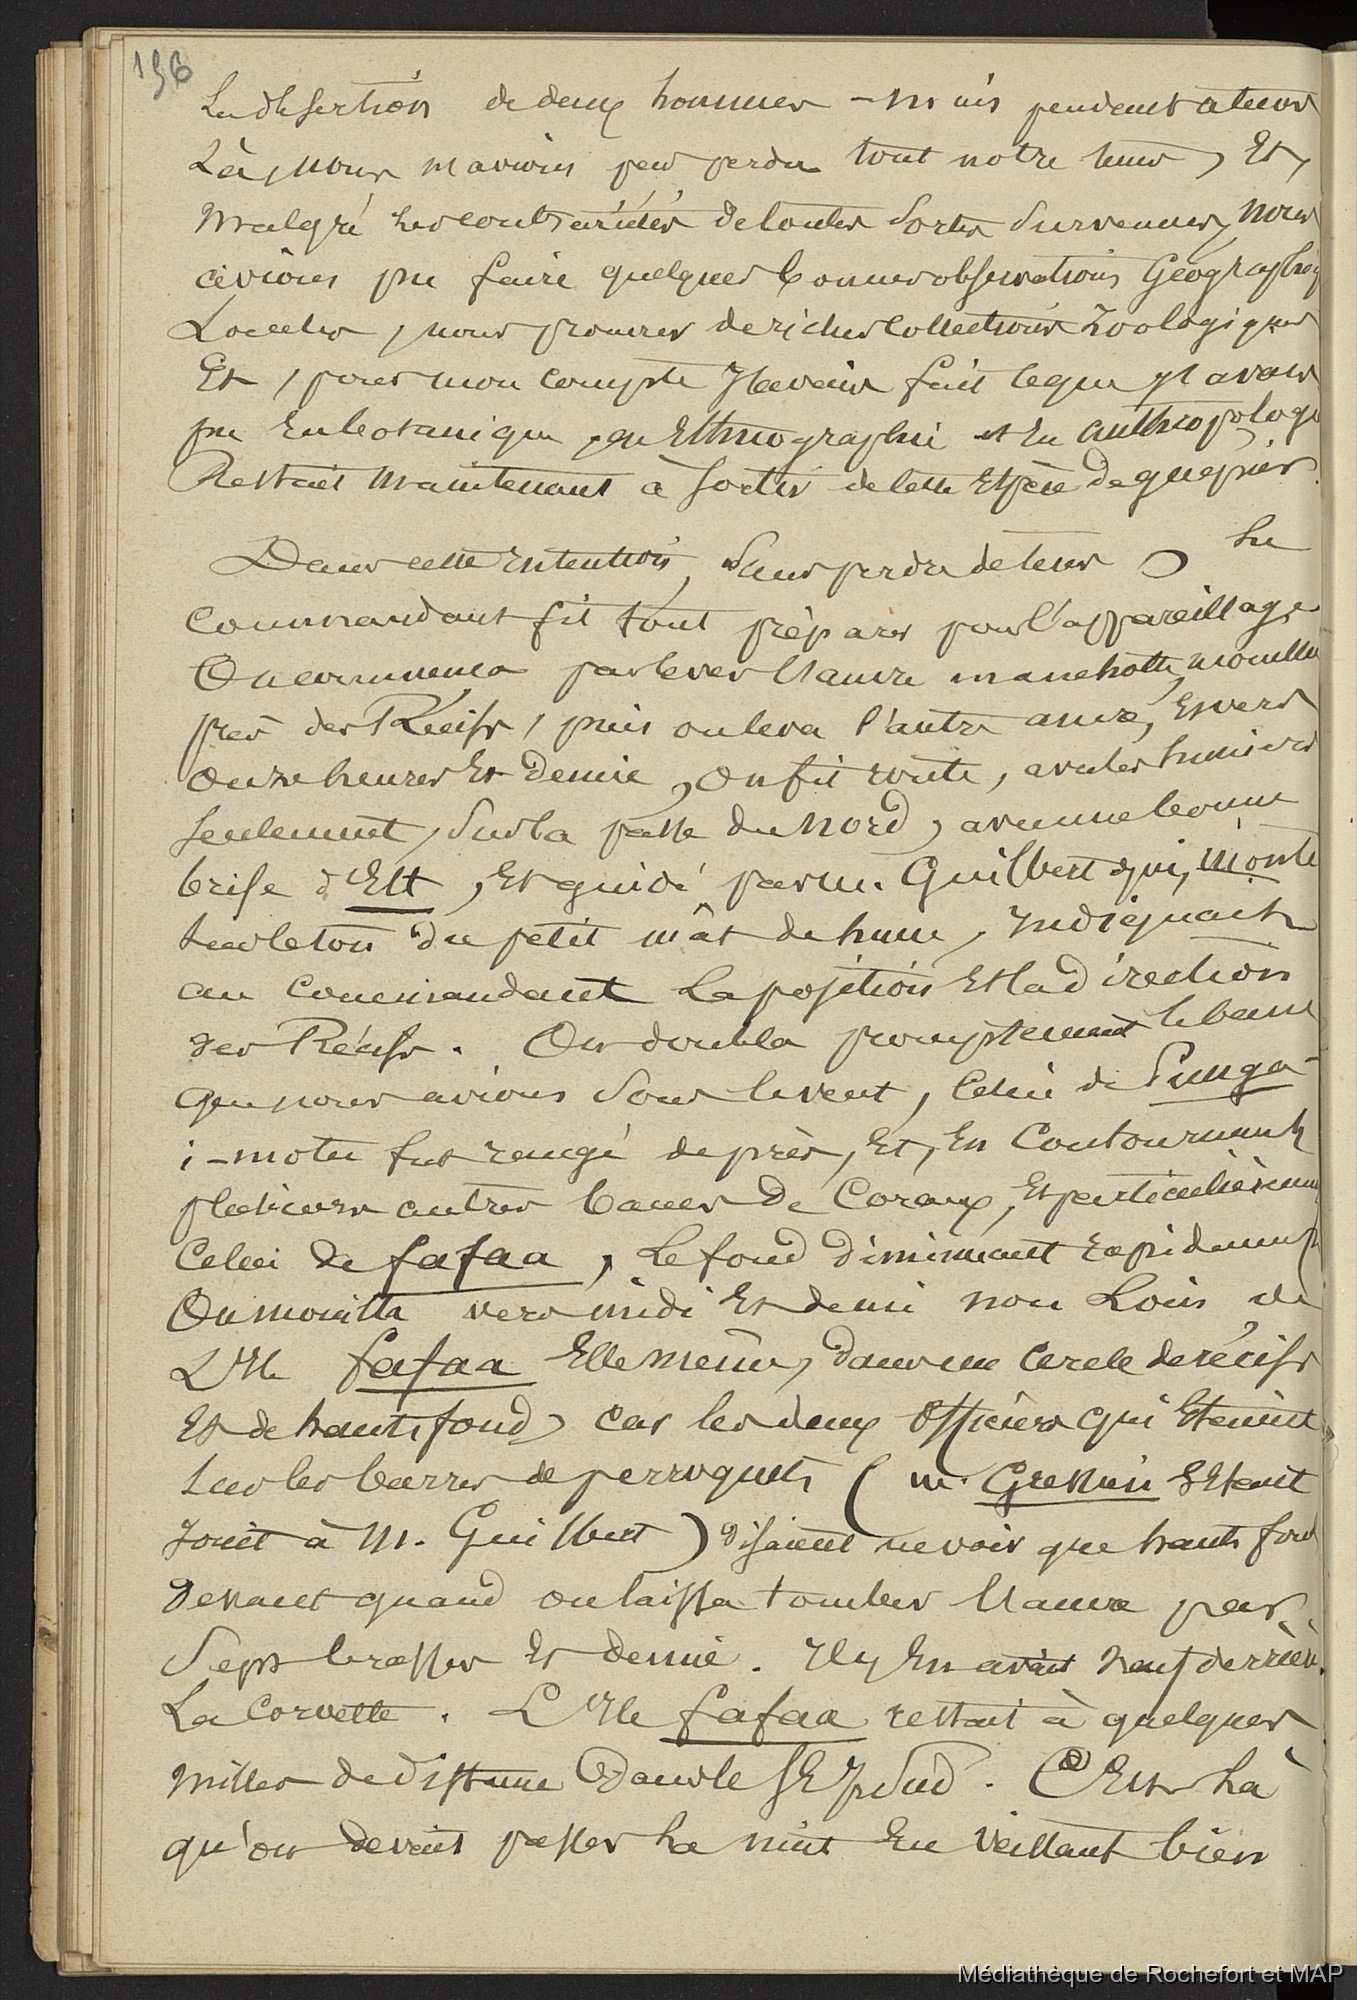 156
La désertion de deux hommes – mais pendant ce tems
Là, nous n'avions pas perdu tout notre tems, Et,
Malgré les contrariétés de toutes sortes survenues, nous
avions pu faire quelques bonnes observations Géographiq
Locales, nous procurer de riches Collections Zoologiques
Et, pour mon compte J'avais fait ce que j'avais
pu En botanique, en Ethnographie et En anthropologi
Restait Maintenant à sortir de cette Espèce de guepier.
Dans cette intention, sans perdre de tems Le
Commandant fit tout préparer pour l'appareillage
On commença par lever l'ancre manchotte, mouillée
près des Récifs, puis on leva l'autre ancre, Et vers
onze heures Et demie, on fit route, avec les huniers
seulement, sur la passe du Nord, avec une bonne
brise d'Est, Et guidé par M. Guilbert qui, monté
sur le ton du petit mât de hune, Indiquait
au Commandant La position Et la direction
des Récifs. On doubla promptement le banc
que nous avions sous le vent, Celui de Punga-
i-motu fut rangé de près, Et, En Contournant
plusieurs autres bancs de Coraux, Et particulièrement
Celui de fafaa, Le fond diminuant rapidement
On mouilla vers midi Et demi non Loin de
L'Ile fafaa Elle même, dans un Cercle de récifs
Et de hauts fond, car les deux officiers qui Etaient
sur les barres de perroquets (M. Gressien s'Etait
Joint à M. Guilbert) disaient ne voir que hauts fond
devant quand on laissa tomber l'ancre par
Sept brasses Et demie. Il y En avait Neuf derrière
La Corvette. L'Ile fafaa restait à quelques
milles de distance dans le SE ¼ Sud. C'Est Là
qu'on devait passer La nuit En veillant bien
Médiathèque de Rochefort et MAP